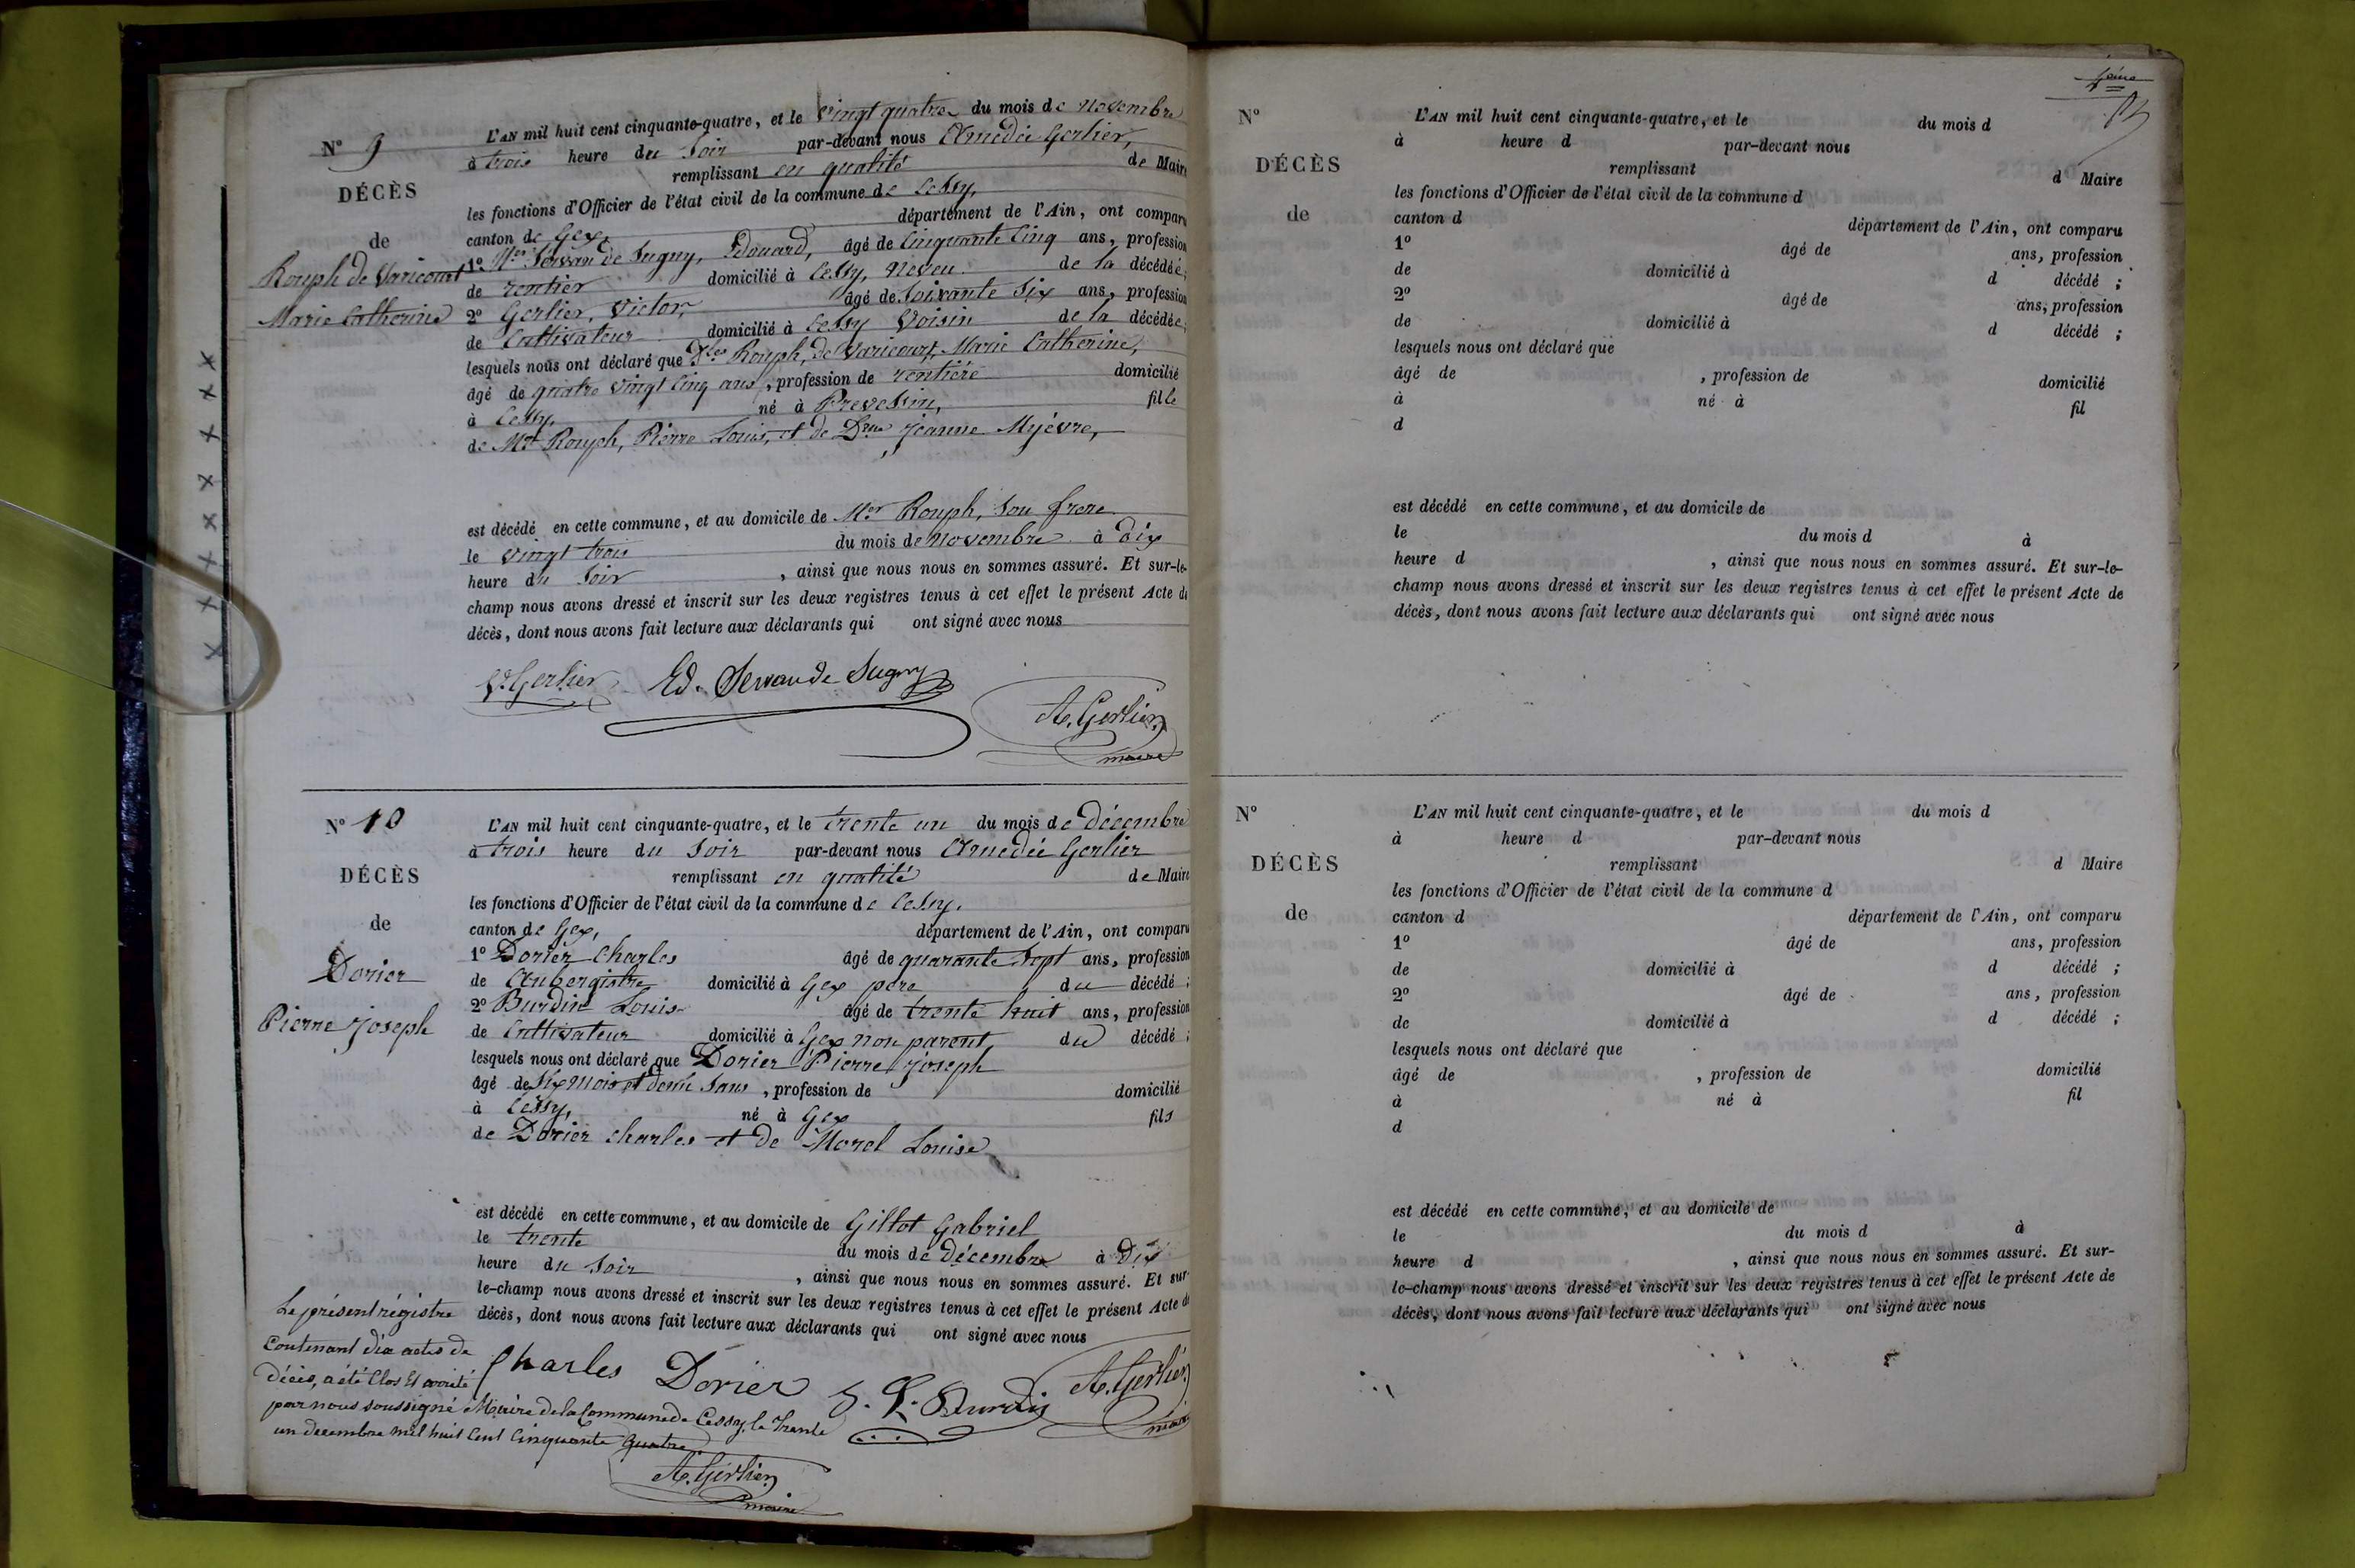 N° 9
DÉCÈS
de
Rouph de Varicourt
Marie Catherine
L'AN mil huit cent cinquante-quatre, et le vingt quatre du mois de Novembre
à trois heure du Soir par-devant nous Amédée Gerlier,
remplissant en qualité de Maire
les fonctions d'Officier de l'état civil de la commune de Cessy,
canton de Gex, département de l'Ain, ont comparu
1° Mr Servan de Sugny, Edouard, âgé de Cinquante Cinq ans, profession
de rentier domicilié à Cessy, Neveu de la décédée;
2° Gerlier, Victor, âgé de Soixante Six ans, profession
de Cultivateur domicilié à Cessy Voisin de la décédée;
lesquels nous ont déclaré que Rouph, de Varicourt, Marie Catherine,
âgé de quatre vingt Cinq ans, profession de rentière domicilié
à Cessy, né à Prevessin, fille
de Mr Rouph, Pierre Louis, et de Dme jeanne Mijevre,
est décédé en cette commune, et au domicile de Mr Rouph, Son frere
le vingt trois du mois de Novembre à dix
heure du Soir, ainsi que nous nous en sommes assuré. Et sur-le-
champ nous avons dressé et inscrit sur les deux registres tenus à cet effet le présent Acte de
décès, dont nous avons fait lecture aux déclarants qui ont signé avec nous
V. Gerlier Ed. Servan de Sugny
A. Gerlier
maire
N° 10
DÉCÈS
de
Dorier
Pierre joseph
L'AN mil huit cent cinquante-quatre, et le trente un du mois de Décembre
à trois heure du Soir par-devant nous Amédée Gerlier
remplissant en qualité de Maire
les fonctions d'Officier de l'état civil de la commune de Cessy,
canton de Gex, département de l'Ain, ont comparu
1° Dorier Charles âgé de quarante Sept ans, profession
de Aubergiste domicilié à Gex pere du décédé;
2° Burdin Louis âgé de trente huit ans, profession
de Cultivateur domicilié à Gex non parent, du décédé;
lesquels nous ont déclaré que Dorier Pierre joseph
âgé de Six Mois et demi Sans, profession de domicilié
à Cessy, né à Gex fils
de Dorier Charles et de Morel Louise
est décédé en cette commune, et au domicile de Gillot Gabriel
le trente du mois de Décembre à Dix
heure du Soir, ainsi que nous nous en sommes assuré. Et sur-
le-champ nous avons dressé et inscrit sur les deux registres tenus à cet effet le présent Acte de
décès, dont nous avons fait lecture aux déclarants qui ont signé avec nous
Charles Dorier L. Burdin A. Gerlier
maire
Le présent régistre
Contenant dix actes de
Décès, a été Clos Et arrêté
par nous soussigné Maire de la Commune de Cessy, le Trente
un decembre mil huit Cent Cinquante quatre
A. Gerlier
maire
N°
DÉCÈS
de
L'AN mil huit cent cinquante-quatre, et le du mois d
à heure d par-devant nous
remplissant d Maire
les fonctions d'Officier de l'état civil de la commune d
canton d département de l'Ain, ont comparu
1° âgé de ans, profession
de domicilié à d décédé;
2° âgé de ans, profession
de domicilié à d décédé;
lesquels nous ont déclaré que
âgé de , profession de domicilié
à né à fil
d
est décédé en cette commune, et au domicile de
le du mois d à
heure d , ainsi que nous nous en sommes assuré. Et sur-le-
champ nous avons dressé et inscrit sur les deux registres tenus à cet effet le présent Acte de
décès, dont nous avons fait lecture aux déclarants qui ont signé avec nous
N°
DÉCÈS
de
L'AN mil huit cent cinquante-quatre, et le du mois d
à heure d par-devant nous
remplissant d Maire
les fonctions d'Officier de l'état civil de la commune d
canton d département de l'Ain, ont comparu
1° âgé de ans, profession
de domicilié à d décédé;
2° âgé de ans, profession
de domicilié à d décédé;
lesquels nous ont déclaré que
âgé de , profession de domicilié
à né à fil
d
est décédé en cette commune, et au domicile de
le du mois d à
heure d , ainsi que nous nous en sommes assuré. Et sur-
le-champ nous avons dressé et inscrit sur les deux registres tenus à cet effet le présent Acte de
décès, dont nous avons fait lecture aux déclarants qui ont signé avec nous